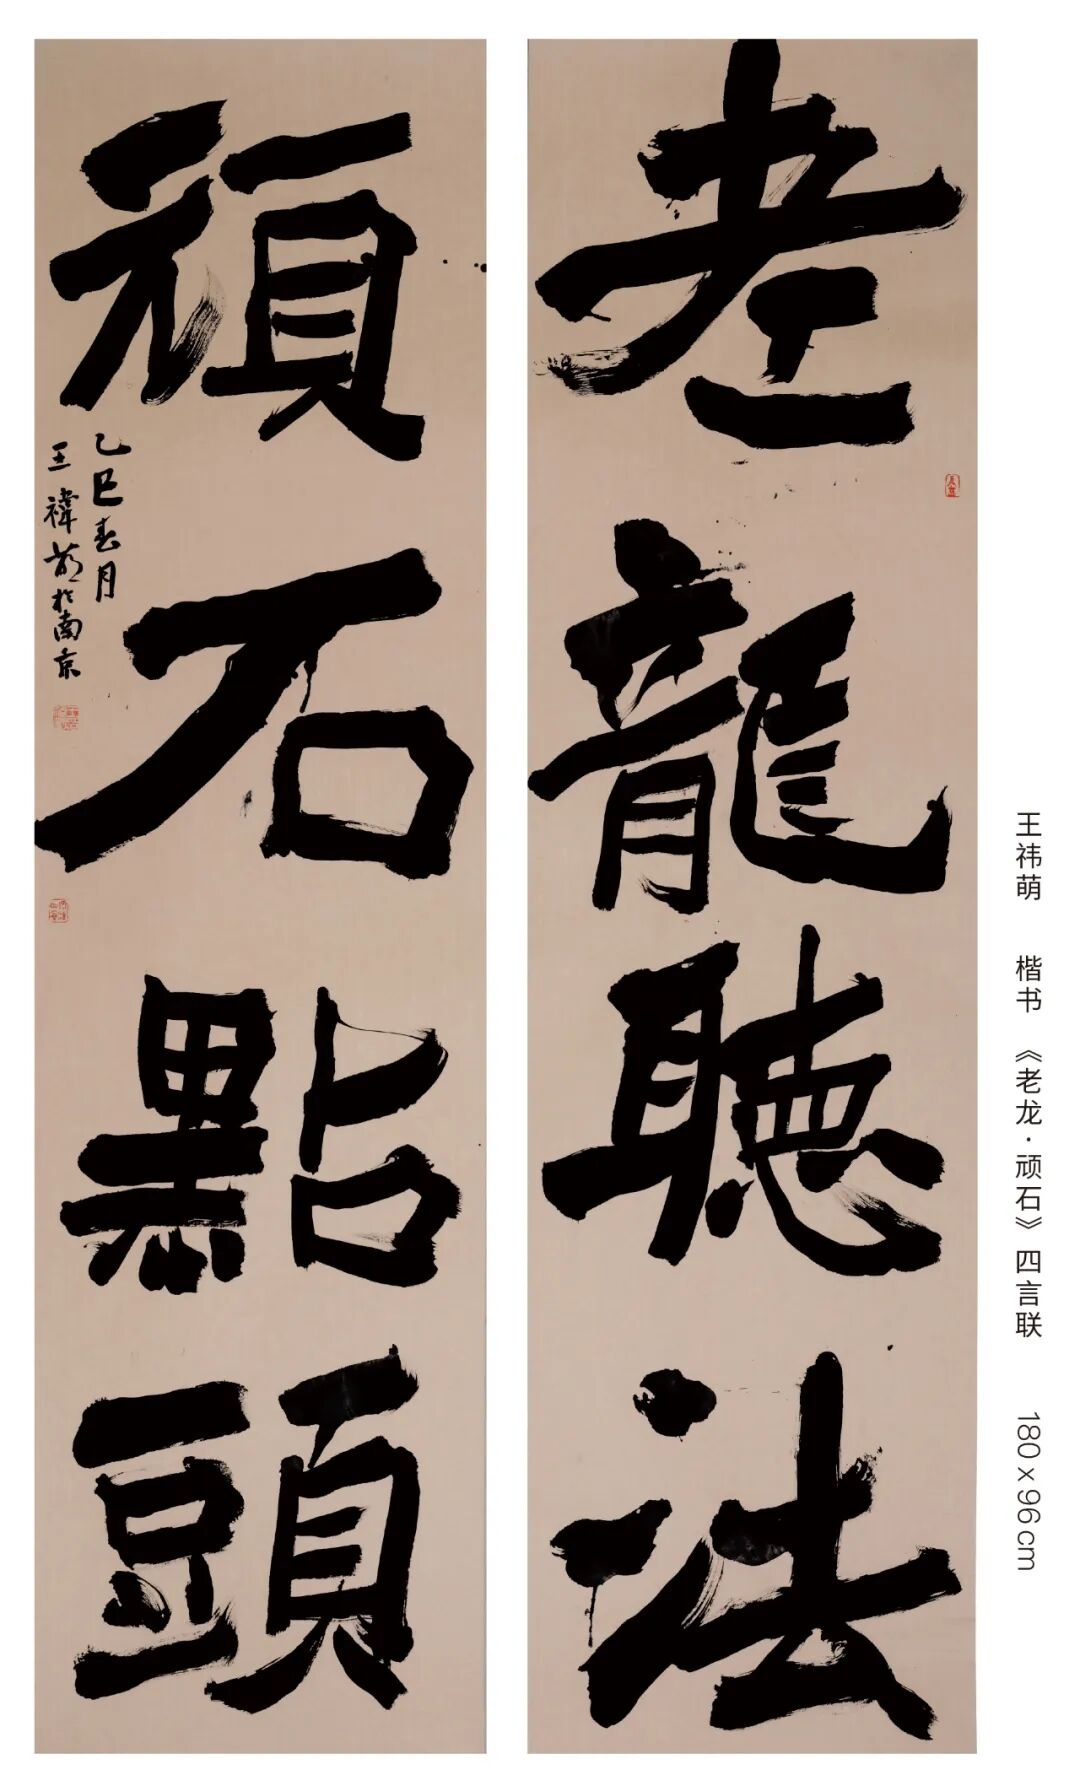 老龍聽法
頑石點頭
乙巳春月
王禕萌於南京
王祎萌 楷书 《老龙·顽石》四言联 180×96cm